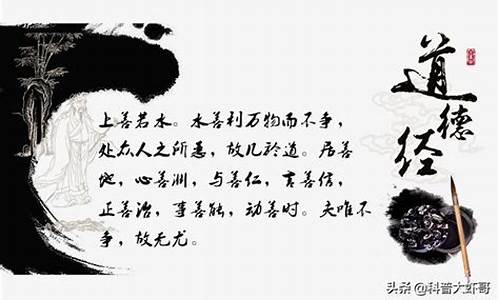 道德经
上善若水。水善利万物而不争，
处众人之所恶，故几於道。居善
地，心善渊，与善仁，言善信，
正善治，事善能，动善时。夫唯不
争，故无尤。
头条@科普大虾哥